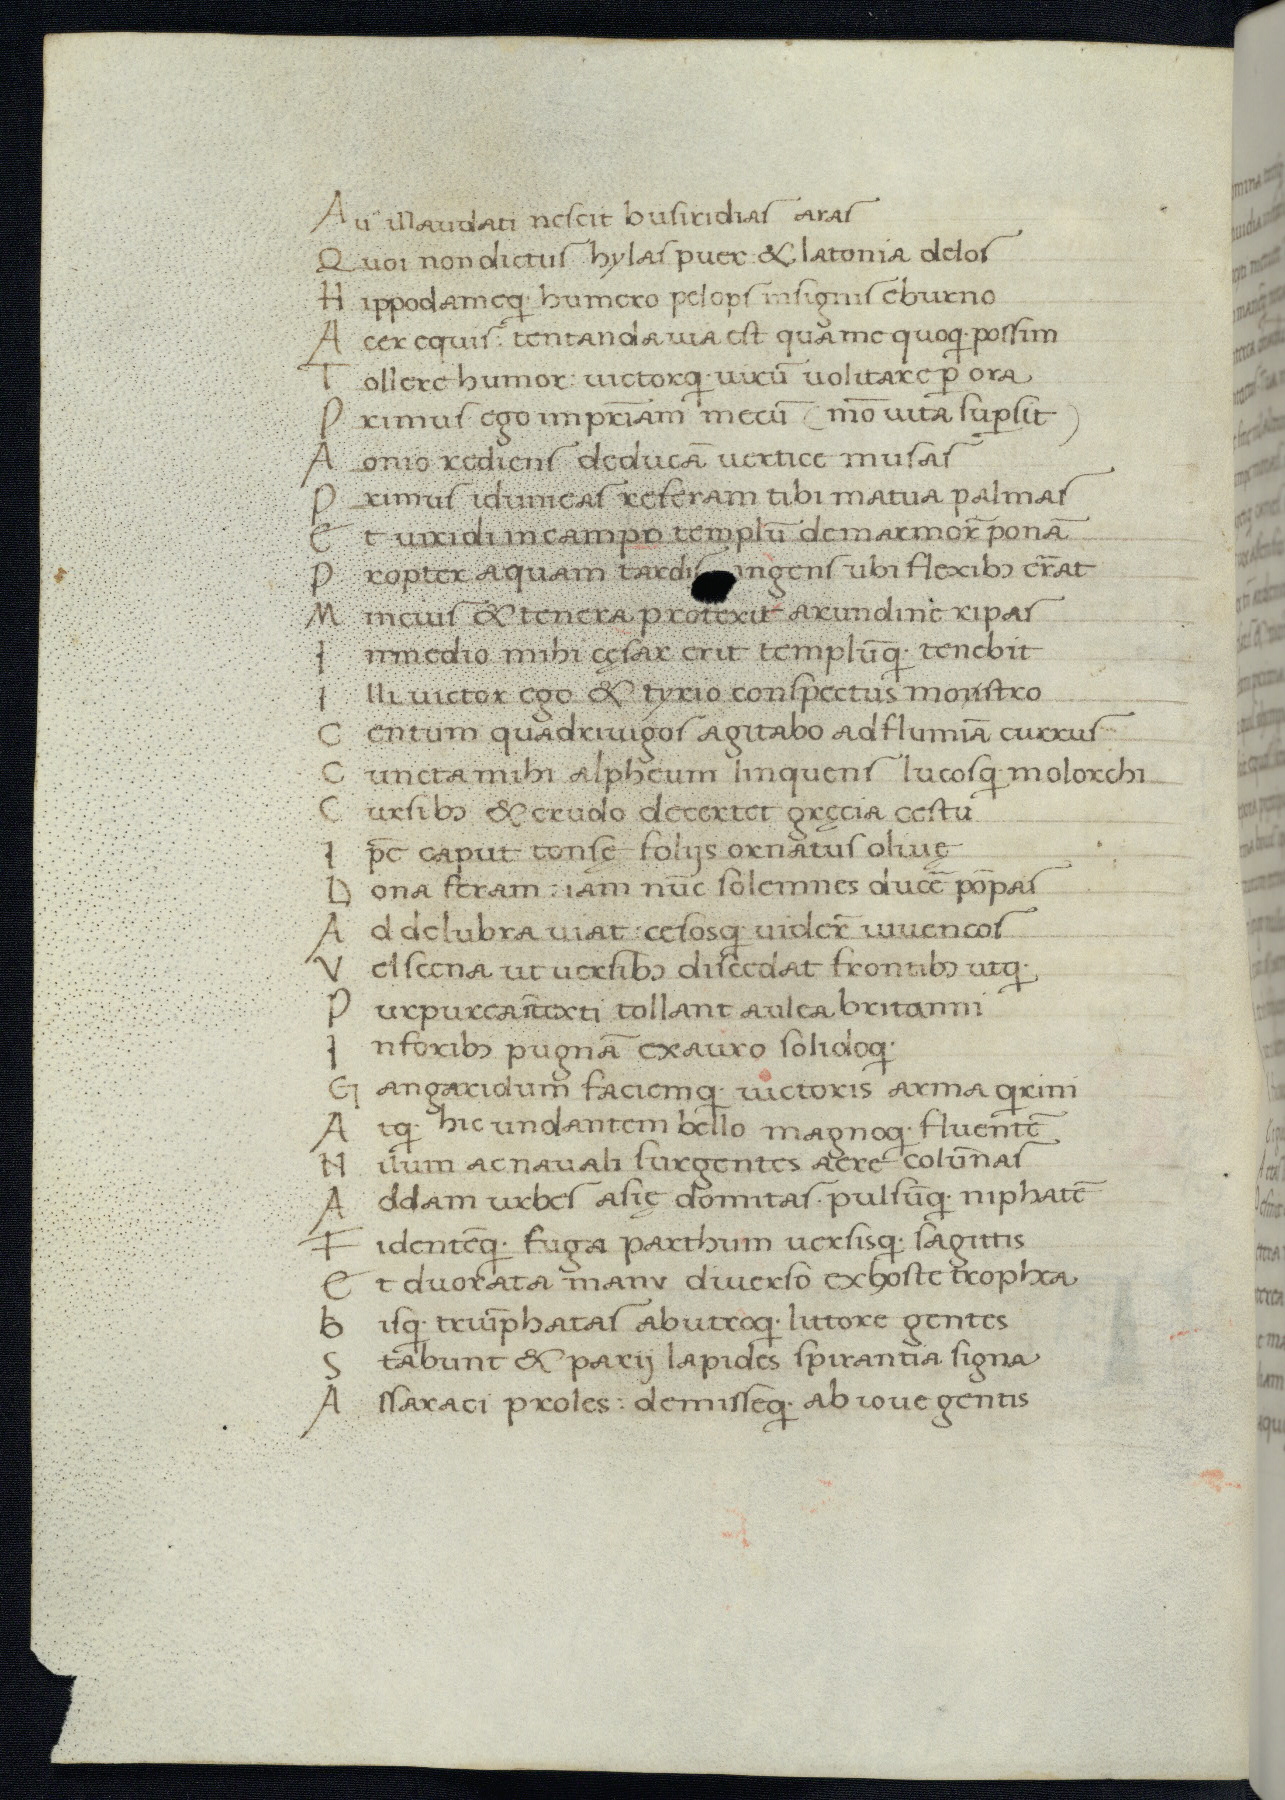 Auͭ illaudati nescit busiridias aras
Quoi non dictus hylas puer & latonia delos
Hippodameq; humero pelops insignis eburno
Acer equis: tentanda uia est qua me quoq; possim
Tollere humor: uictorq; uirū uolitare p̄ ora
Primus ego in pr̄iam mecū (mō uita sup̄sit)
Aonio rediens deducā uertice musas
Primus idumeas referam tibi matua palmas
Et uiridi in campo templū de marmor̄ ponā
Propter aquam tardis ingens ubi flexibꝫ er̄rat
Mincuis & tenera protexit arundine ripas
In medio mihi cęsar erit templūq; tenebit
Illi uictor ego & tyrio conspectus monstro
Centum quadriuigos agitabo ad flumīa currus
Cuncta mihi alpheum linquens lucosq; molorchi
Cursibꝫ & crudo decertet gręcia cestu
Ip̄e caput tonsę folijs ornatus oliuę
Dona feram: iam nūc solemnes ducē pōpas
Ad delubra uiat: cesosq; uider̄ iuuencos
Vel scena ut uersibꝫ discedat frontibꝫ utq;
Purpurea ītexti tollant aulea britanni
In foribꝫ pugnā ex auro solidoq;
Gangaridum faciemq; uictoris arma qrini
Atq; hic undantem bello magnoq; fluentē
Nilum ac nauali surgentes aere colūnas
Addam urbes asię domitas. pulsūq; niphatē
Fidentēq; fuga parthum uersisq; sagittis
Et duo rata manv diuerso ex hoste trophea
Bisq; triūphatas ab utroq; littore gentes
Stabunt & parij lapides spirantia signa
Assaraci proles: demisseq; ab ioue gentis